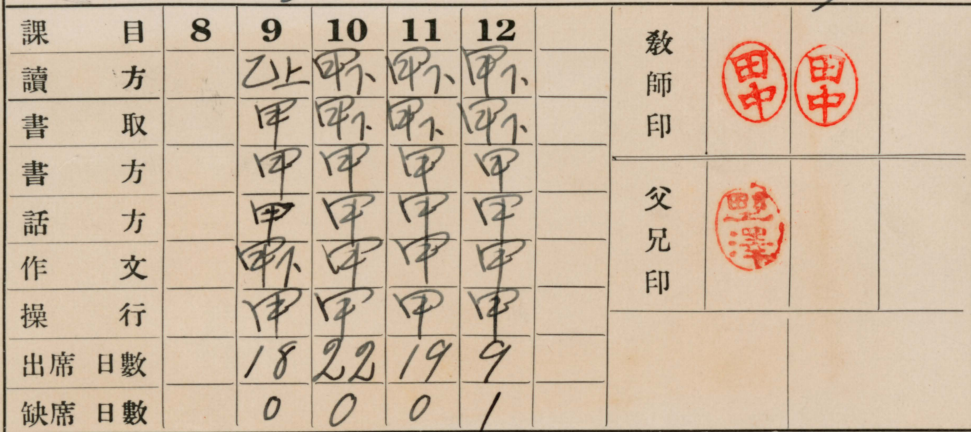 課目 8 9 10 11 12
讀方 乙上 甲下 甲下 甲下
書取 甲 甲下 甲下 甲下
書方 甲 甲 甲 甲
話方 甲 甲 甲 甲
作文 甲下 甲 甲 甲
操行 甲 甲 甲 甲
出席日數 18 22 19 9
缺席日數 0 0 0 1
敎師印 田中 田中
父兄印 野澤